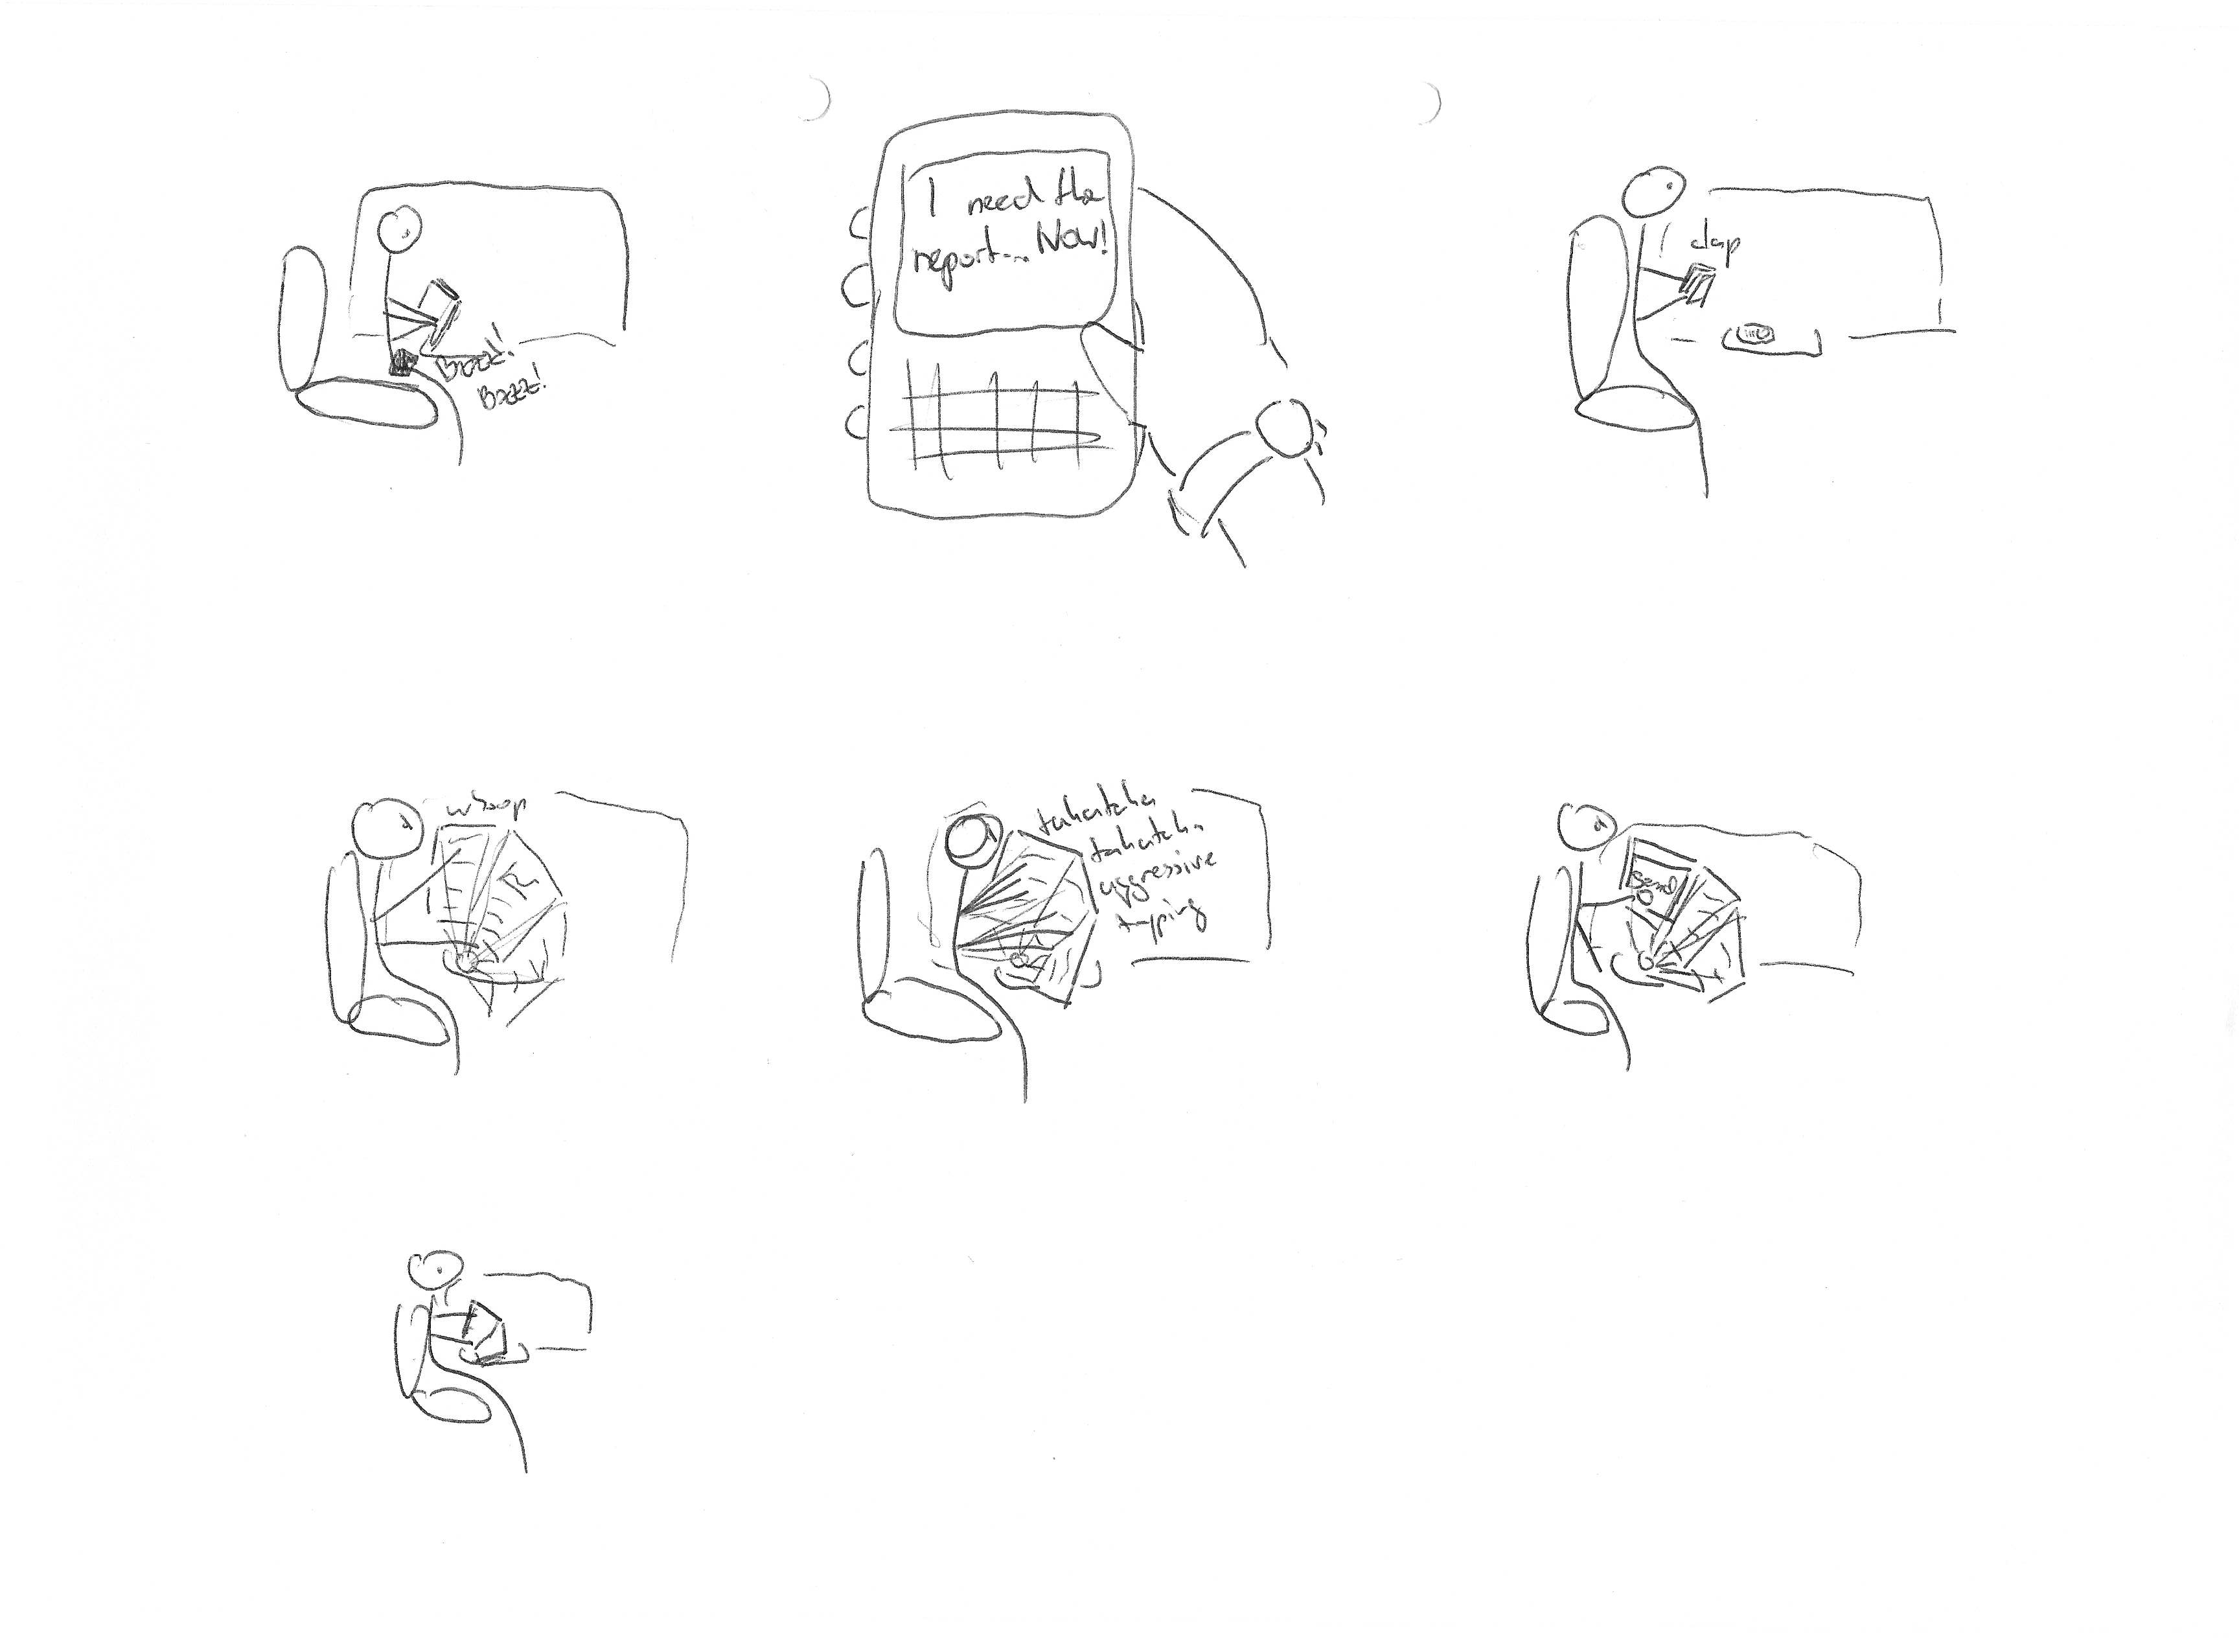 Bzzz!
Bzzz!
I need the
report... Now!
clap
whoop
takataka
takataka
aggressive
typing
Send